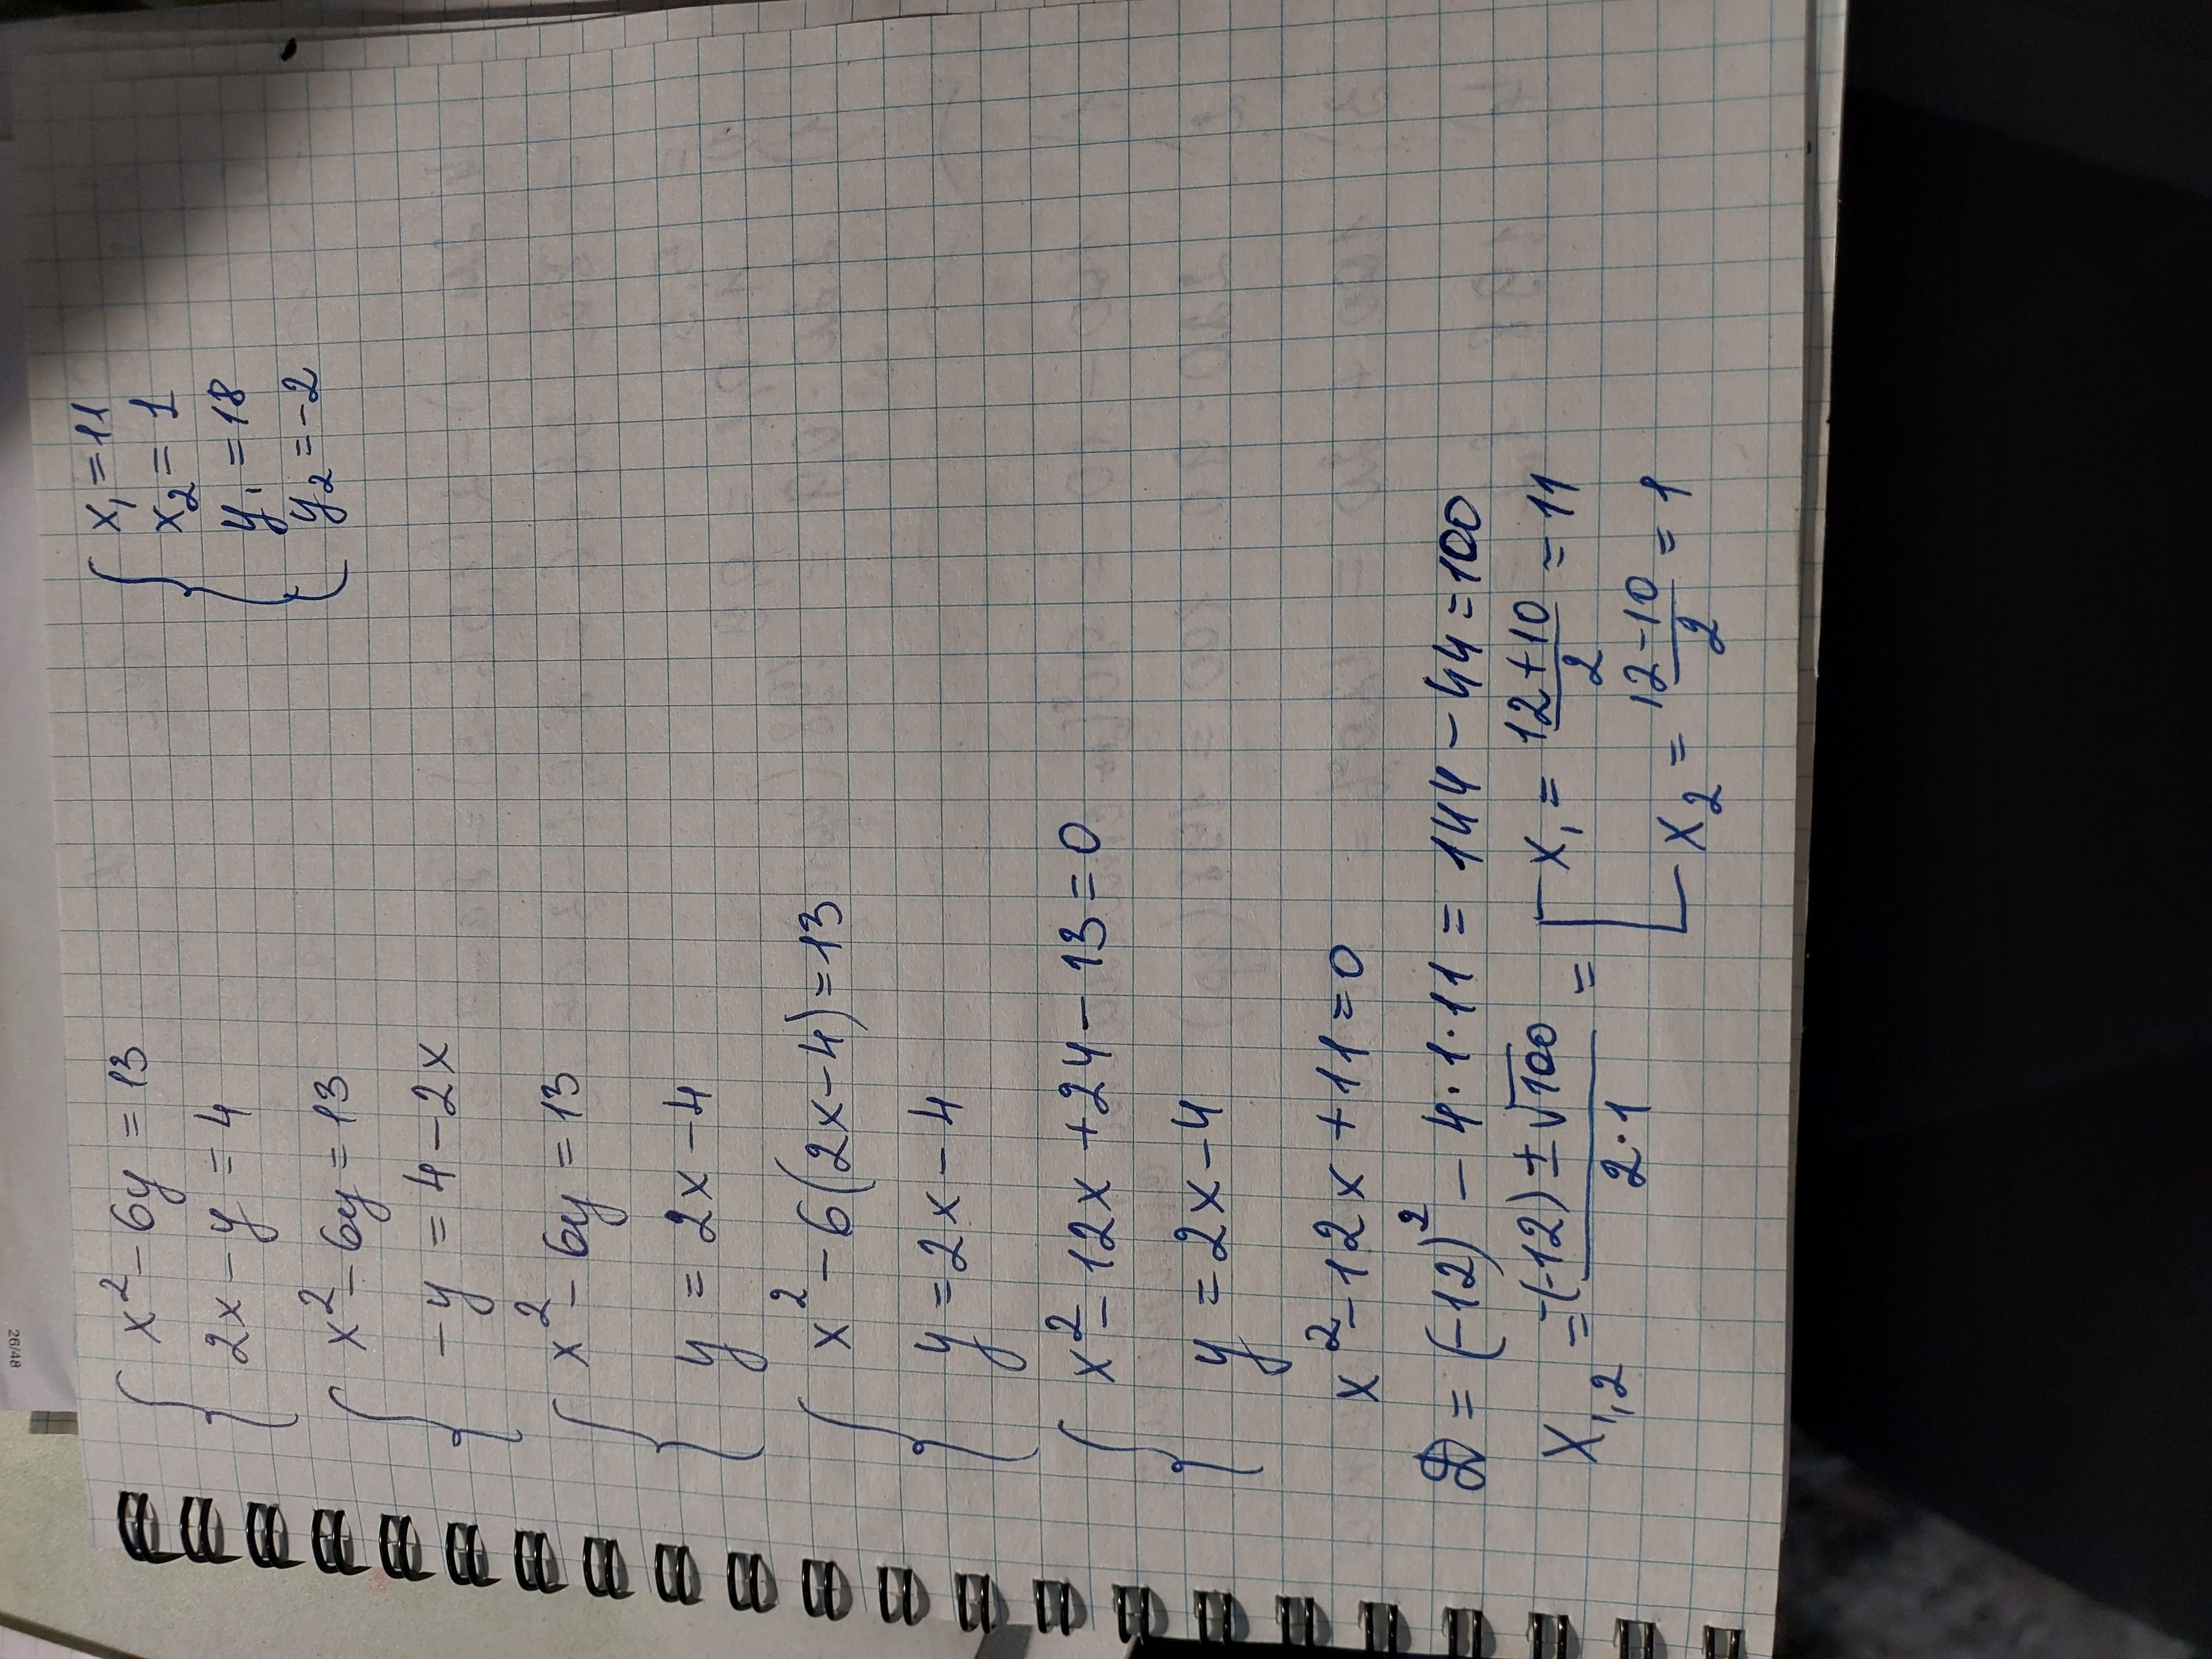 { x² - 6y = 13
2x - y = 4
{ x² - 6y = 13
-y = 4 - 2x
{ x² - 6y = 13
y = 2x - 4
{ x² - 6(2x - 4) = 13
y = 2x - 4
{ x² - 12x + 24 - 13 = 0
y = 2x - 4
x² - 12x + 11 = 0
D = (-12)² - 4·1·11 = 144 - 44 = 100
x₁,₂ = -(-12) ± √100 / 2·1 = [ x₁ = 12 + 10 / 2 = 11
x₂ = 12 - 10 / 2 = 1
{ x₁ = 11
x₂ = 1
y₁ = 18
y₂ = -2
26/48